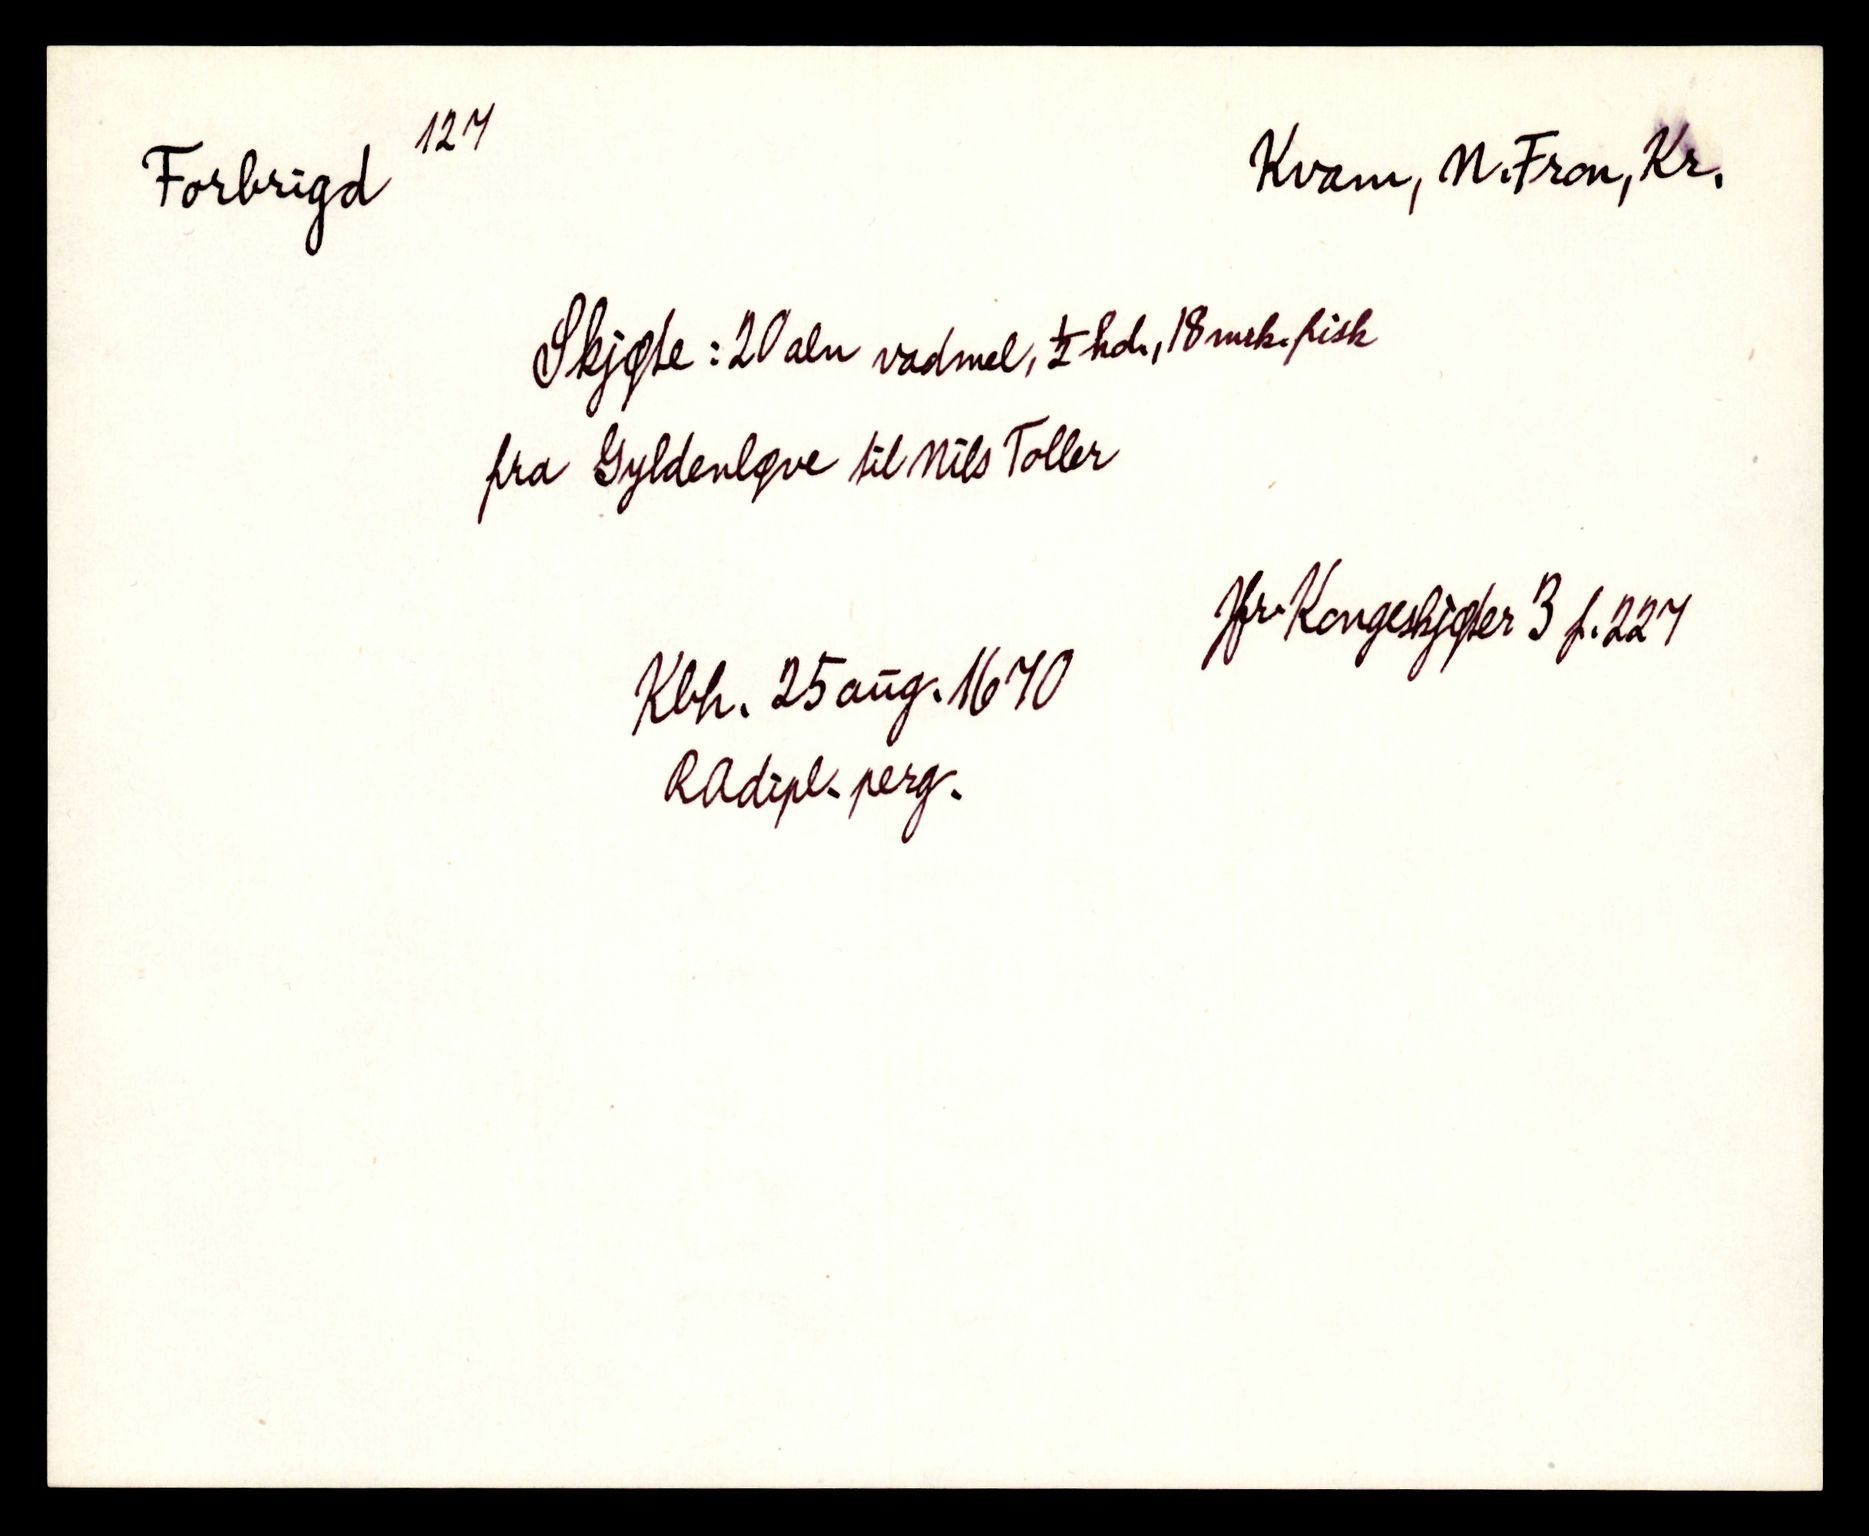 Forbrigd 127
Kvam, N. Fron, Kr.
Skjøte: 20 aln vadmel, ½ hd., 18 mrk. fisk
fra Gyldenløve til Nils Toller
Jfr. Kongeskjøter 3 f. 227
Kbh. 25 aug. 1670
RA dipl. perg.